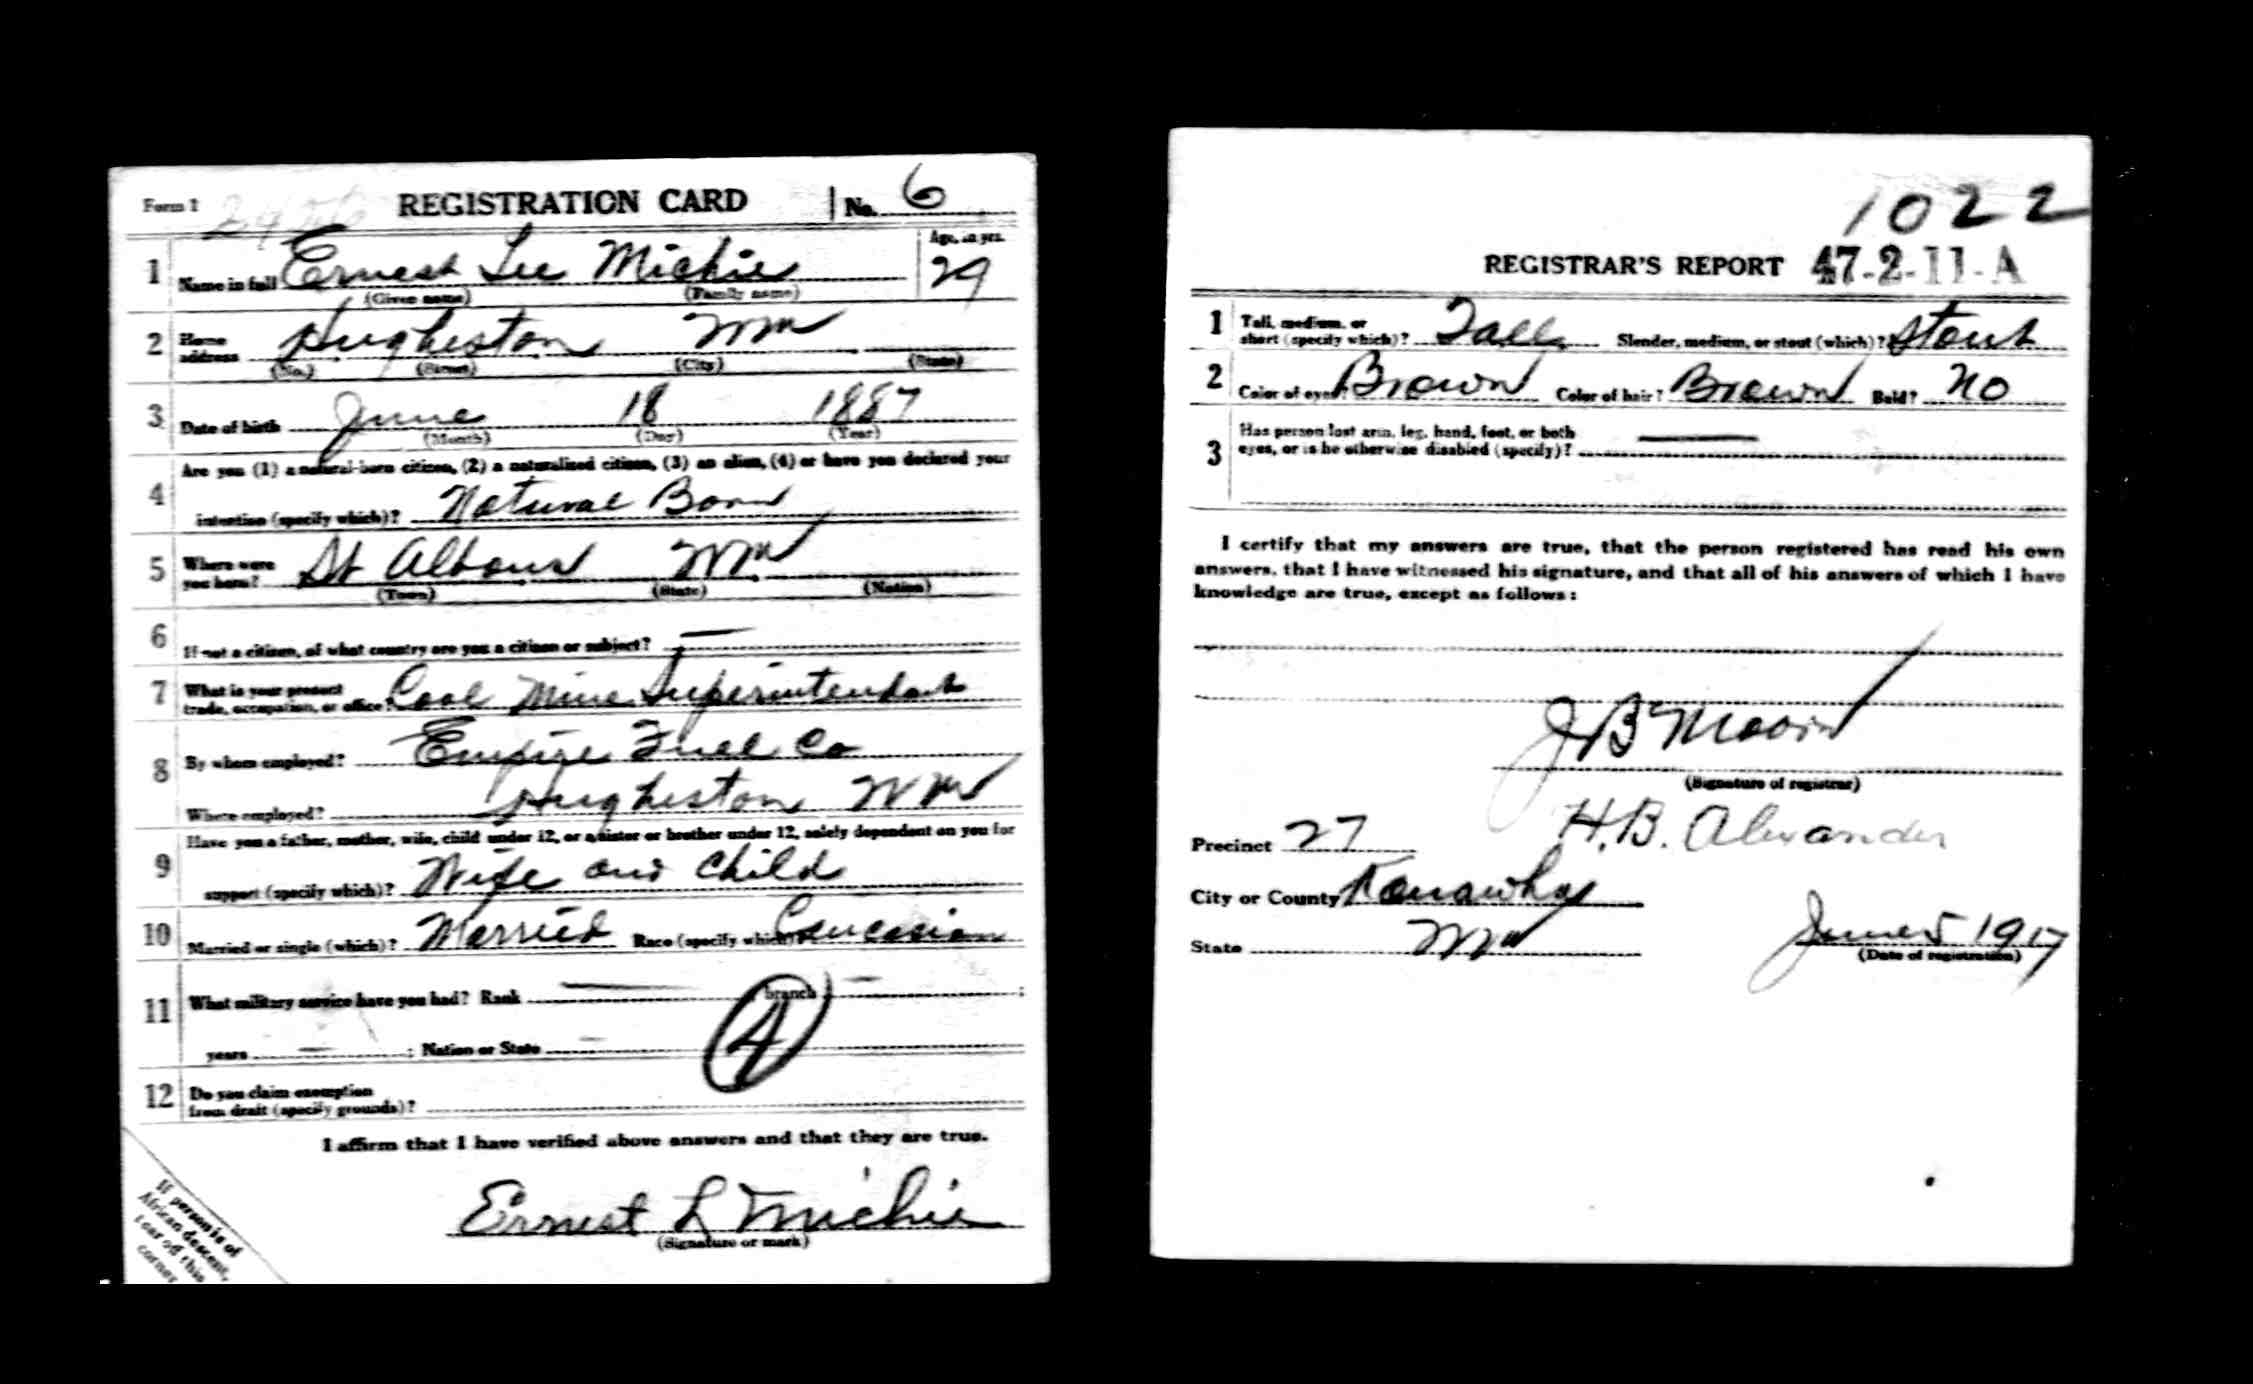 Form 1 REGISTRATION CARD No. 6
1 Name in full Ernest Lee Michie Age, in yrs. 29
(Given name) (Family name)
2 Home address Hugheston W Va
(No.) (Street) (City) (State)
3 Date of birth June 18 1887
(Month) (Day) (Year)
4 Are you (1) a natural-born citizen, (2) a naturalized citizen, (3) an alien, (4) or have you declared your
intention (specify which)? Natural Born
5 Where were you born? St Albans W Va
(Town) (State) (Nation)
6 If not a citizen, of what country are you a citizen or subject? —
7 What is your present trade, occupation, or office? Coal Mine Superintendent
8 By whom employed? Empire Fuel Co
Where employed? Hugheston W Va
9 Have you a father, mother, wife, child under 12, or a sister or brother under 12, solely dependent on you for
support (specify which)? Wife and Child
10 Married or single (which)? Married Race (specify which)? Caucasian
11 What military service have you had? Rank — branch —;
years —; Nation or State —
4
12 Do you claim exemption
from draft (specify grounds)?
I affirm that I have verified above answers and that they are true.
Ernest L Michie
(Signature or mark)
If person is of
African descent,
tear off this
corner
1022
REGISTRAR'S REPORT 47-2-11-A
1 Tall, medium, or
short (specify which)? Tall Slender, medium, or stout (which)? Stout
2 Color of eyes? Brown Color of hair? Brown Bald? No
3 Has person lost arm, leg, hand, foot, or both
eyes, or is he otherwise disabled (specify)? —
I certify that my answers are true, that the person registered has read his own
answers, that I have witnessed his signature, and that all of his answers of which I have
knowledge are true, except as follows:
J B Moore
(Signature of registrar)
H. B. Alexander
Precinct 27
City or County Kanawha
State W Va June 5 1917
(Date of registration)